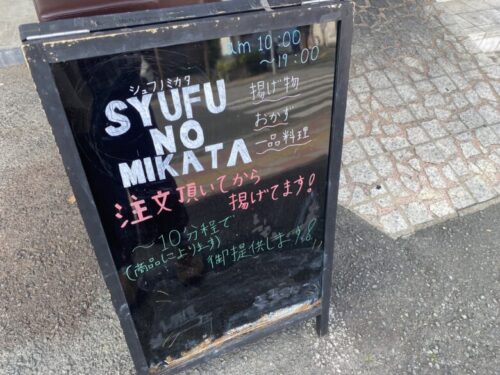 am 10:00
～19:00
シュフノミカタ
SYUFU
NO
MIKATA
揚げ物
おかず
一品料理
注文頂いてから
揚げてます!
～10分程で
(商品によります)
御提供します!